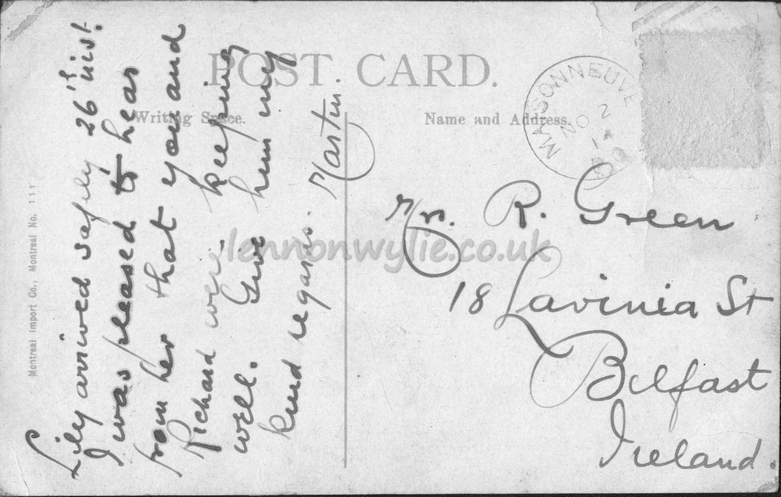 POST CARD.
Writing Space.
Name and Address.
MAISONNEUVE
NO 2
Lily arrived safely 26th inst.
I was pleased to hear
from her that you and
Richard were keeping
well. Give him my
kind regards. Martin
Mrs. R. Green
18 Lavinia St
Belfast
Ireland.
Montreal Import Co., Montreal No. 111
lennonwylie.co.uk